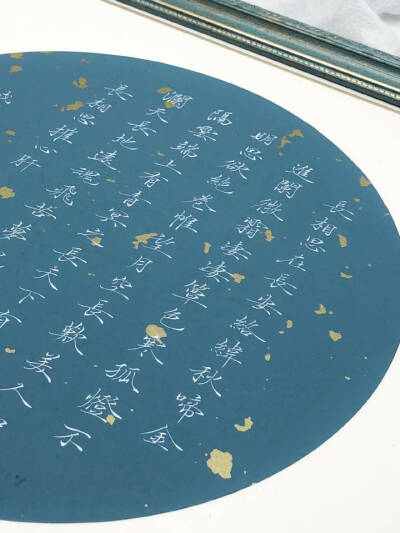 長相思在長安絡緯秋啼金
闌微霜淒淒簟色寒孤燈不
明思欲絕卷帷望月空長歎美人
隔雲端上有青冥之長天下有
瀾天長地遠魂飛苦
長相思摧心肝